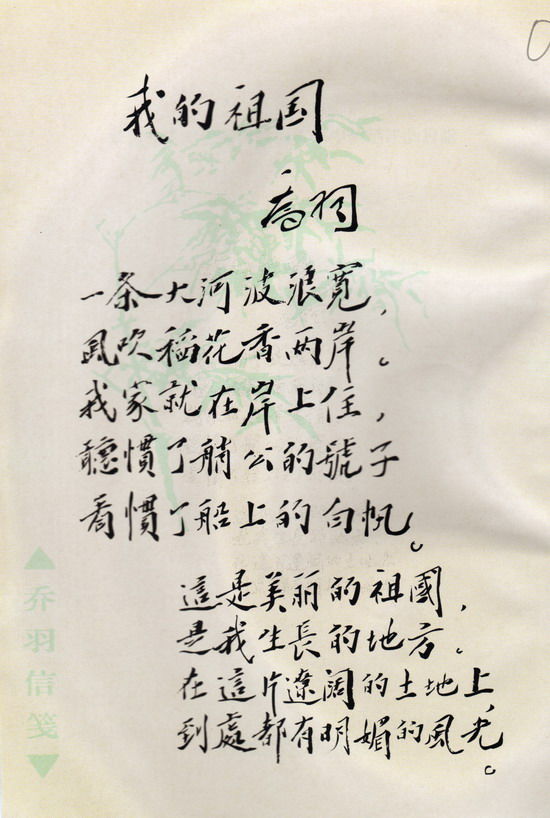 我的祖国
喬羽
一条大河波浪寬，
風吹稻花香两岸。
我家就在岸上住，
聽慣了艄公的號子
看慣了船上的白帆。
這是美丽的祖國，
是我生長的地方。
在這片遼阔的土地上，
到處都有明媚的風光。
乔羽信笺